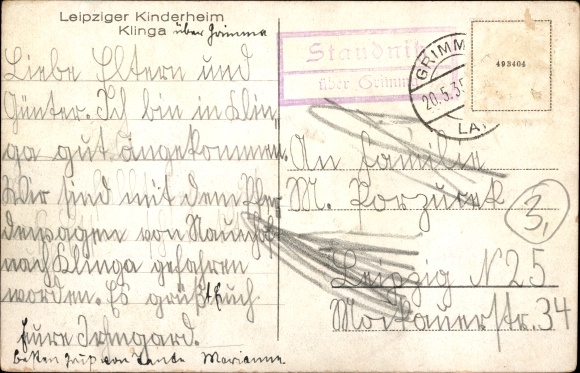 Leipziger Kinderheim
Klinga über Grimma
Liebe Eltern und
Günter. Ich bin in Klin
ga gut angekommen.
Wir sind mit dem Pfer
dewagen von Naunhof
nach Klinga gefahren
worden. Es grüßt Euch
Eure Irmgard.
besten Gruß von Tante Marianne
Staudnitz
über Grimma
GRIMMA
20.5.35
LAND
493404
An Familie
M. Korzurek
3,
Leipzig N 25
Mockauerstr. 34